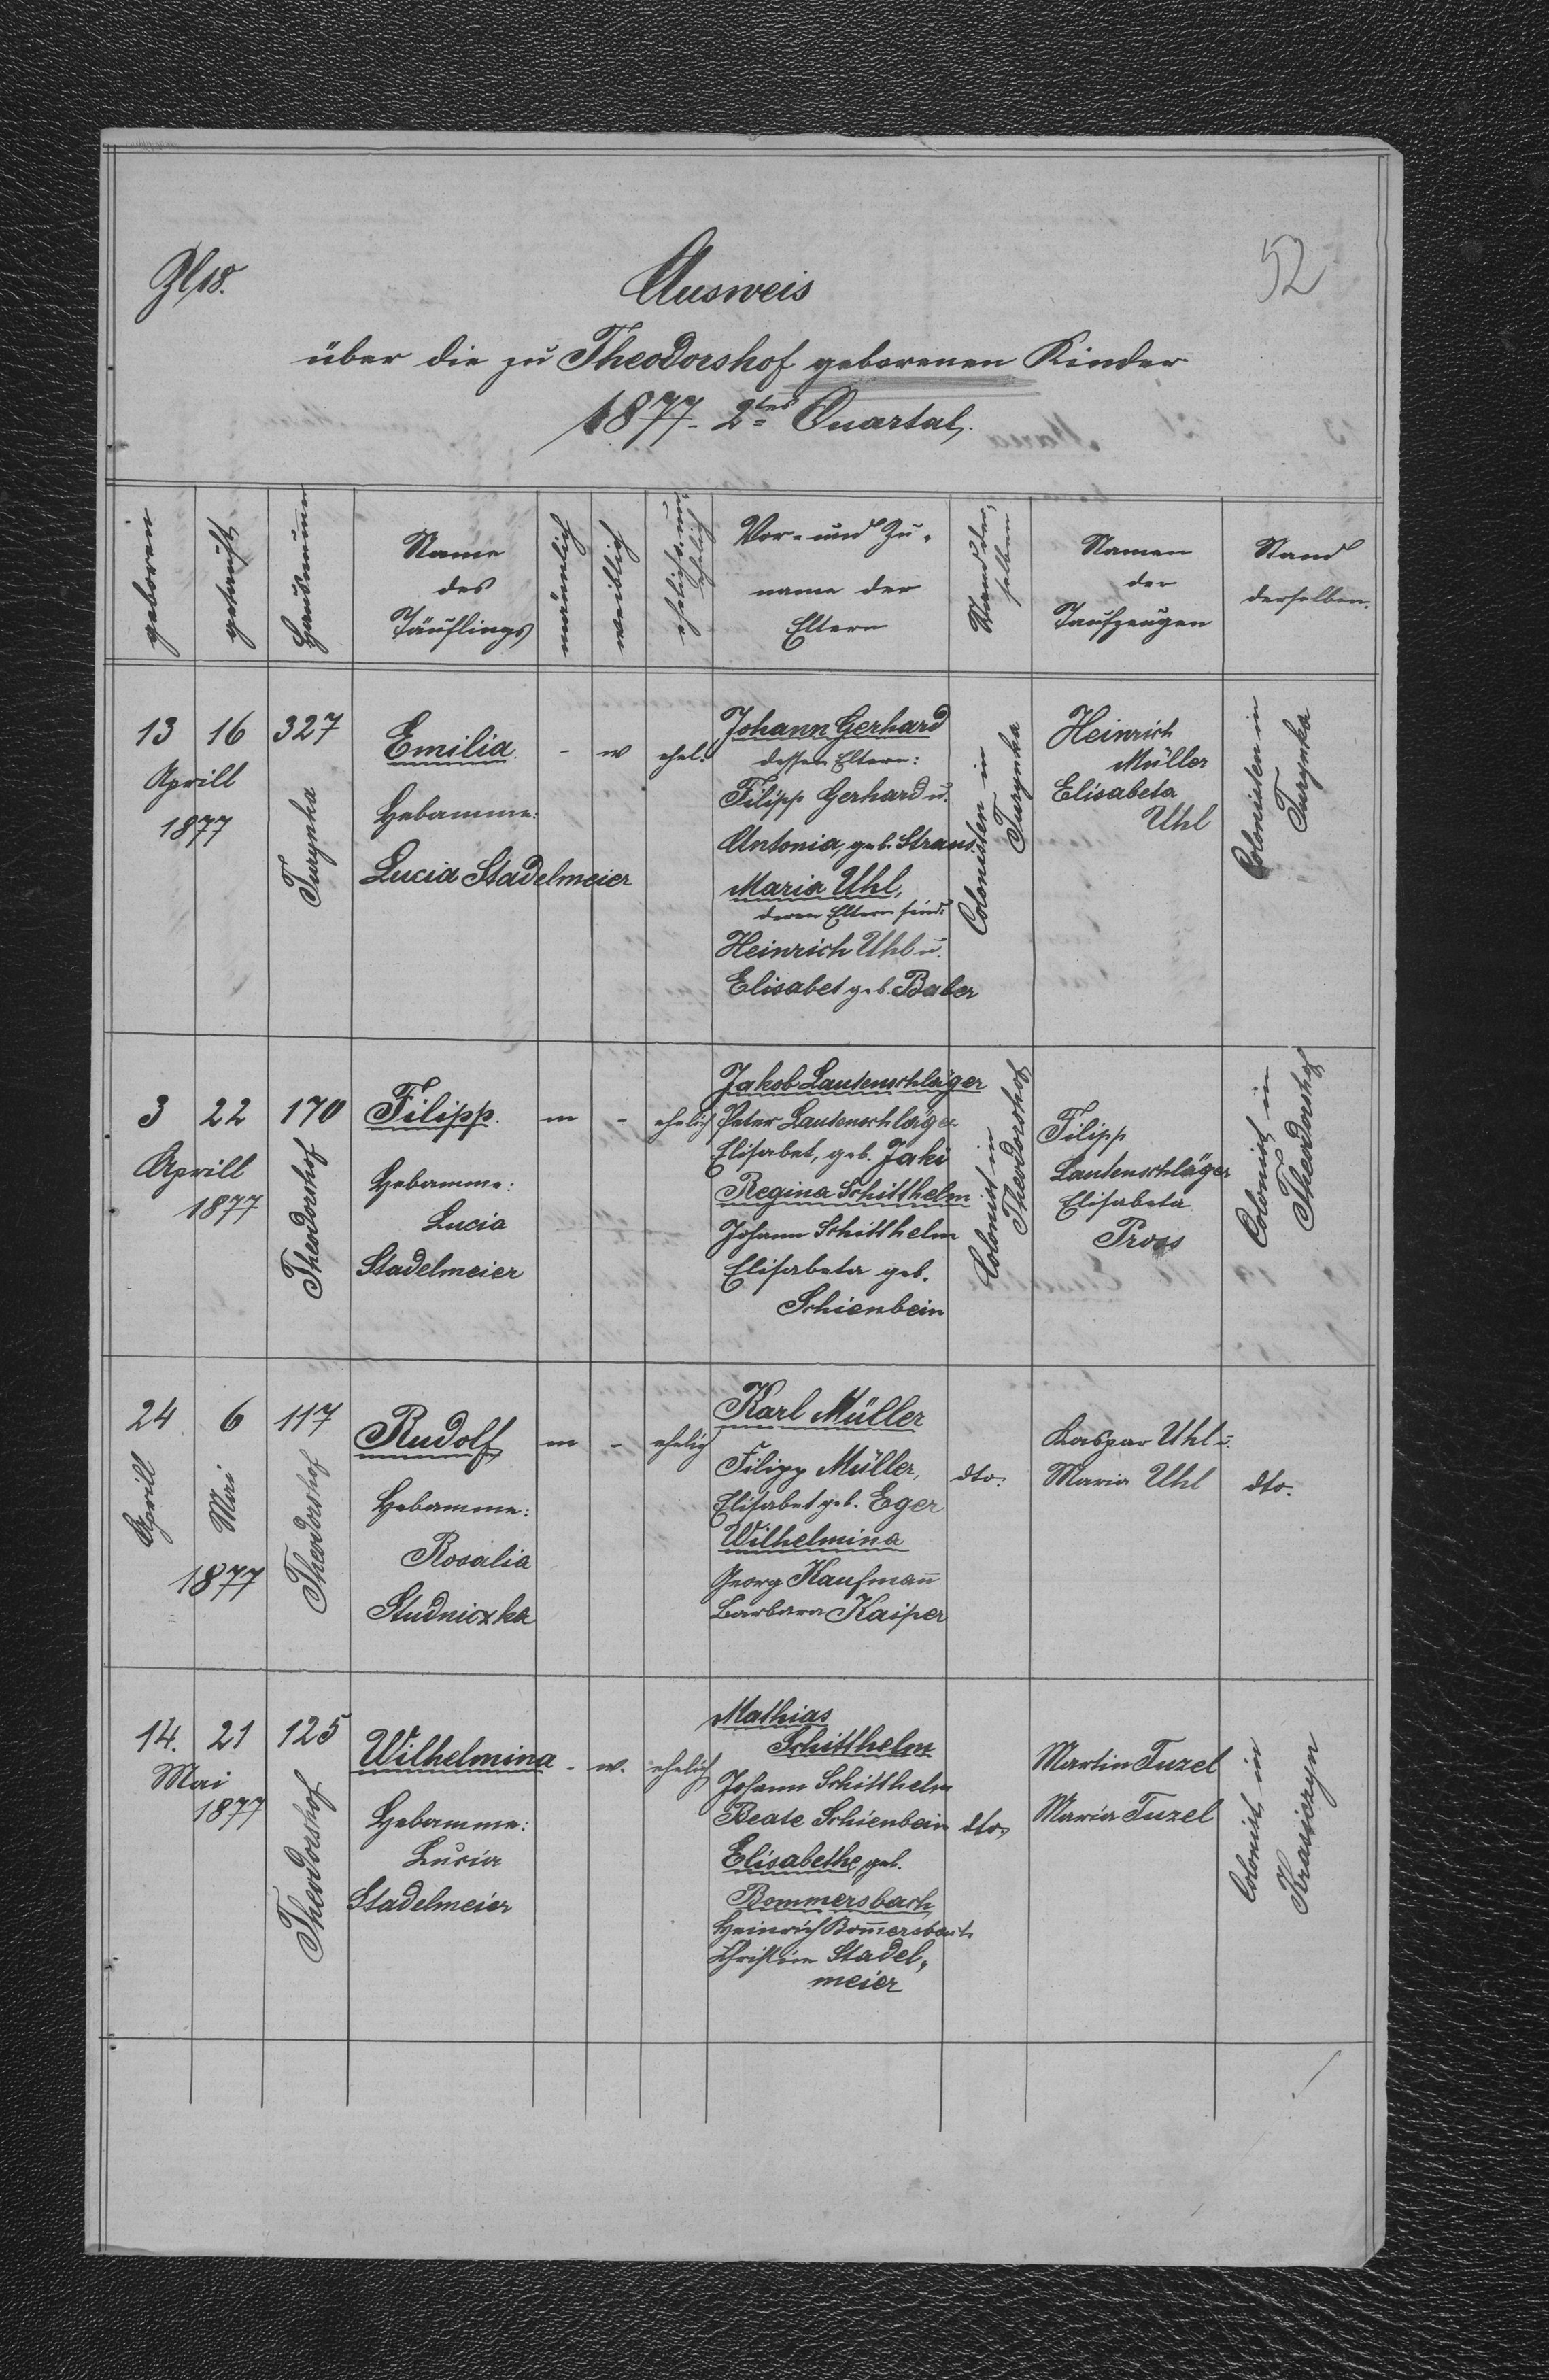 Zl 18.
52
Ausweis
über die zu Theodorshof geborenen Kinder
1877 - 2tes Quartal.
geboren
getauft
Hausnummer
Name
des
Täuflings
männlich
weiblich
ehelich o. un-
ehelich
Vor- und Zu-
name der
Eltern
Stand der-
selben
Namen
der
Taufzeugen
Stand
derselben.
13 16 327
Aprill
1877
Turynka
Emilia
Hebamme:
Lucia Stadelmeier
- w ehel.
Johann Gerhard
dessen Eltern:
Filipp Gerhard u.
Antonia, geb. Straus.
Maria Uhl,
deren Eltern sind:
Heinrich Uhl u.
Elisabet geb. Baber
Colonisten in
Turynka
Heinrich
Müller
Elisabeta
Uhl
Colonisten in
Turynka
3 22 170
Aprill
1877
Theodorshof
Filipp.
Hebamme:
Lucia
Stadelmeier
m - ehelich
Jakob Lautenschläger
Peter Lautenschläger
Elisabet, geb. Jaki
Regina Schitthelm
Johann Schitthelm
Elisabeta geb.
Schienbein
Colonist in
Theodorshof
Filipp
Lautenschläger
Elisabeta
Pross
Colonist in
Theodorshof
24 6 117
Aprill
Mai
1877
Theodorshof
Rudolf
Hebamme:
Rosalia
Studniczka
m - ehelig
Karl Müller
Filipp Müller,
Elisabet geb. Eger
Wilhelmina
Georg Kaufmañ
Barbara Kaiper
dto.
Kaspar Uhl u.
Maria Uhl
dto.
14. 21 125
Mai
1877
Theodorshof
Wilhelmina
Hebamme:
Lucia
Stadelmeier
- w. ehelich
Mathias
Schitthelm
Johann Schitthelm
Beate Schienbein
Elisabethe, geb.
Bommersbach
Heinrich Bom̄ersbach
Christine Stadel-
meier
dto.
Martin Tuzel
Maria Tuzel
Colonist in
Krasiczyn